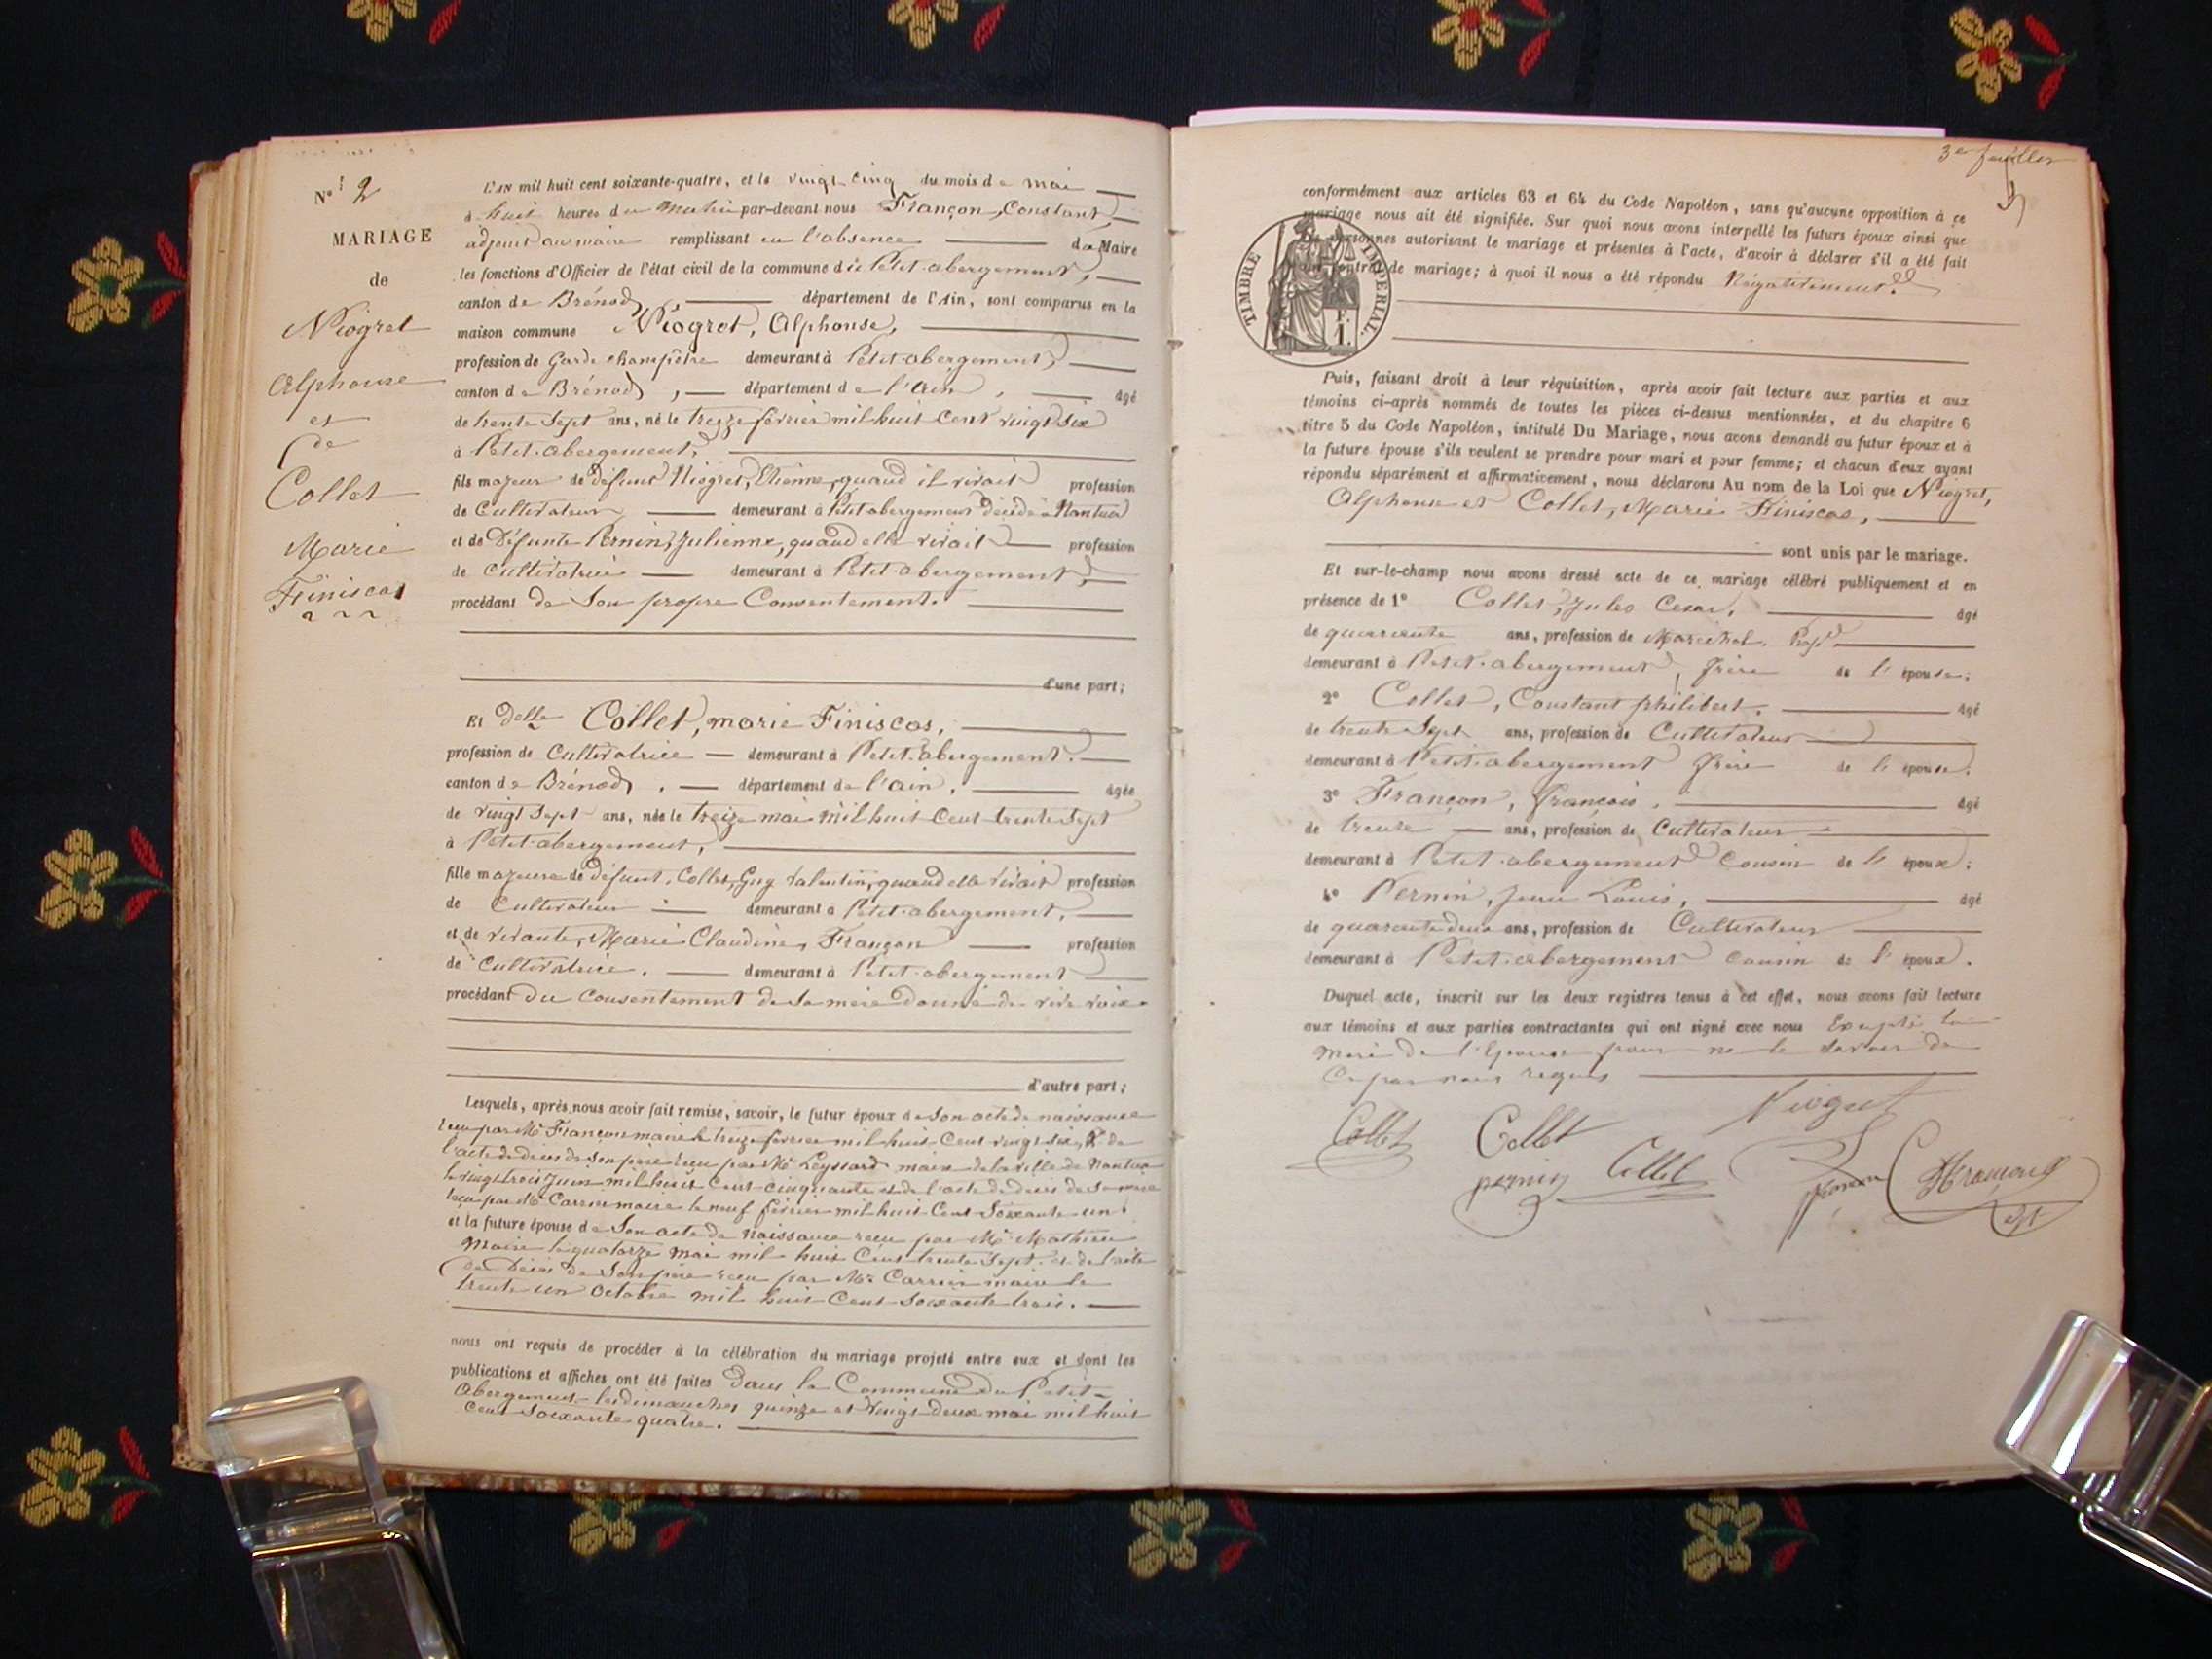 N.º 2
MARIAGE
de
Niogret
Alphonse
et
de
Collet
Marie
Finiscas
L'AN mil huit cent soixante-quatre, et le vingt cinq du mois de mai
à huit heures du matin par-devant nous Françon, Constant,
adjoint au maire remplissant en l'absence du Maire
les fonctions d'Officier de l'état civil de la commune de Petit-abergement,
canton de Brénod, département de l'Ain, sont comparus en la
maison commune Niogret, Alphonse,
profession de Garde champêtre demeurant à Petit-abergement,
canton de Brénod, département de l'ain, âgé
de trente Sept ans, né le treize février mil huit cent vingt six
à Petit-abergement,
fils majeur de défunt Niogret, Etienne, quand il vivait profession
de Cultivateur demeurant à Petit abergement décédé à Nantua
et de Défunte Pernin, Julienne, quand elle vivait profession
de Cultivatrice demeurant à Petit-abergement,
procédant de Son propre Consentement.
d'une part;
Et delle Collet, marie Finiscas,
profession de Cultivatrice demeurant à Petit-abergement.
canton de Brénod, département de l'ain, âgée
de vingt Sept ans, née le treize mai mil huit Cent trente Sept
à Petit-abergement,
fille majeure de défunt, Collet, Guy Valentin, quand elle vivait profession
de Cultivateur demeurant à Petit-abergement,
et de vivante, Marie Claudine, Françon profession
de Cultivatrice. demeurant à Petit-abergement
procédant du Consentement de Sa mère donné de vive voix.
d'autre part;
Lesquels, après nous avoir fait remise, savoir, le futur époux de Son acte de naissance
reçu par Mr Françon maire le treize février mil huit Cent vingt six, & de
l'acte de décès de Son père reçu par Mr Leyssard maire de la ville de Nantua
le vingt trois Juin mil huit Cent cinquante et de l'acte de décès de Sa mère
reçu par Mr Carrier maire le neuf février mil huit Cent Soixante un
et la future épouse de Son acte de naissance reçu par Mr Mathieu
Maire le quatorze mai mil huit Cent trente Sept. et de l'acte
de Décès de Son père reçu par Mr Carrier maire le
trente un octobre mil huit Cent Soixante trois.
nous ont requis de procéder à la célébration du mariage projeté entre eux et dont les
publications et affiches ont été faites Dans la Commune du Petit-
abergement les dimanches quinze et vingt-deux mai mil huit
Cent Soixante quatre.
conformément aux articles 63 et 64 du Code Napoléon, sans qu'aucune opposition à ce
mariage nous ait été signifiée. Sur quoi nous avons interpellé les futurs époux ainsi que
personnes autorisant le mariage et présentes à l'acte, d'avoir à déclarer s'il a été fait
contrat de mariage; à quoi il nous a été répondu Négativement.
TIMBRE IMPERIAL.
F.
1.
Puis, faisant droit à leur réquisition, après avoir fait lecture aux parties et aux
témoins ci-après nommés de toutes les pièces ci-dessus mentionnées, et du chapitre 6
titre 5 du Code Napoléon, intitulé Du Mariage, nous avons demandé au futur époux et à
la future épouse s'ils veulent se prendre pour mari et pour femme; et chacun d'eux ayant
répondu séparément et affirmativement, nous déclarons Au nom de la Loi que Niogret,
Alphonse et Collet, Marie Finiscas,
sont unis par le mariage.
Et sur-le-champ nous avons dressé acte de ce mariage célébré publiquement et en
présence de 1º Collet, Jules Cesar, âgé
de quarante ans, profession de Maréchal
demeurant à Petit-abergement, frère de l'épouse;
2º Collet, Constant philibert, âgé
de trente Sept ans, profession de Cultivateur
demeurant à Petit-abergement frère de l'épouse.
3º Françon, françois, âgé
de trente ans, profession de Cultivateur
demeurant à Petit-abergement Cousin de l'époux;
4º Pernin, Jean Louis, âgé
de quarante deux ans, profession de Cultivateur
demeurant à Petit-abergement Cousin de l'époux.
Duquel acte, inscrit sur les deux registres tenus à cet effet, nous avons fait lecture
aux témoins et aux parties contractantes qui ont signé avec nous Excepté la
mère de l'Epouse pour ne le Savoir de
Ce par nous requis
Collet Collet Niogret
pernin Collet